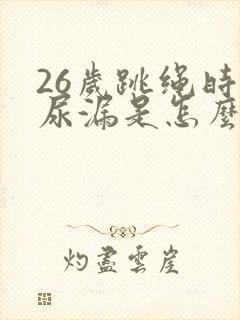 26歲跳绳時
尿漏是怎麼
灼盡雲崖